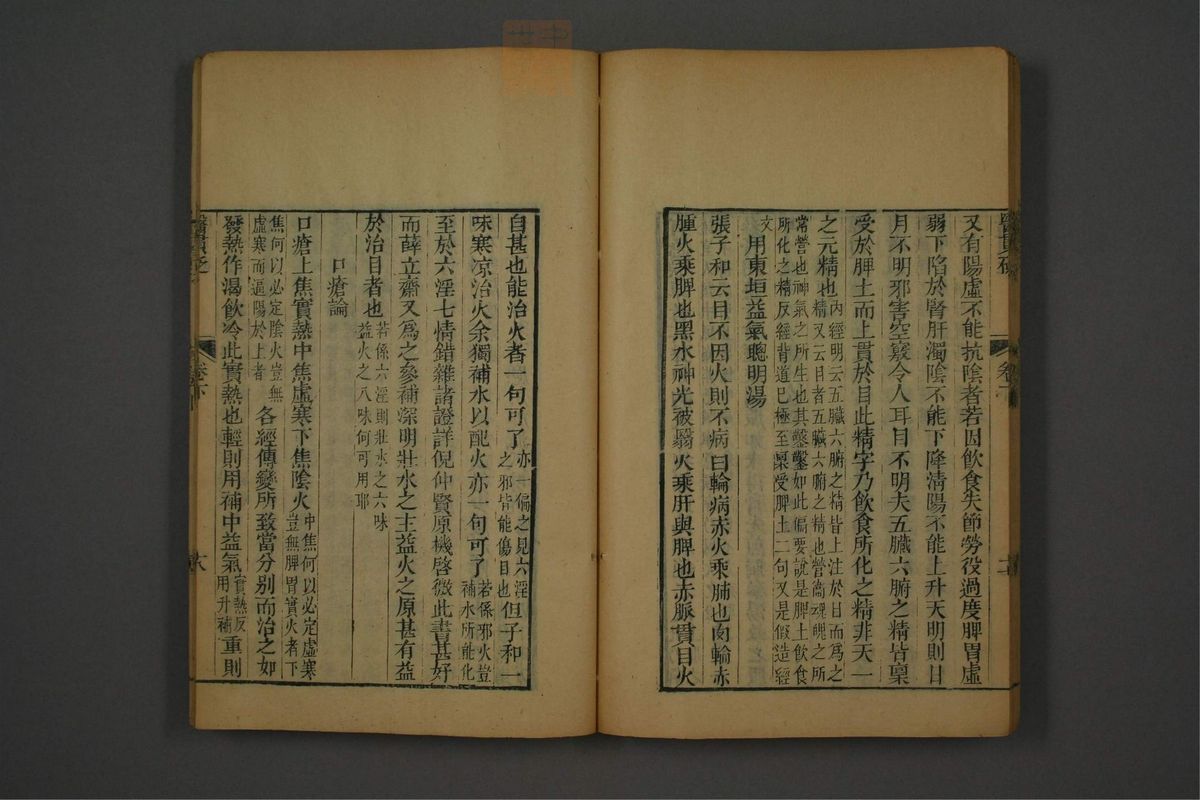 又有陽虛不能抗陰者若因飲食失節勞役過度脾胃虛
弱下陷於腎肝濁陰不能下降清陽不能上升天明則日
月不明邪害空竅令人耳目不明夫五臟六腑之精皆稟
受於脾土而上貫於目此精字乃飲食所化之精非天一
之元精也內經明云五臟六腑之精皆上注於目而爲之
精又云目者五臟六腑之精也營衛魂魄之所
常營也神氣之所生也其鑿鑿如此偏要說是脾土飲食
所化之精反經背道已極至稟受脾土二句又是假造經
文
用東垣益氣聰明湯
張子和云目不因火則不病白輪病赤火乘肺也肉輪赤
腫火乘脾也黑水神光被翳火乘肝與腎也赤脈貫目火
自甚也能治火者一句可了亦一偏之見六淫
之邪皆能傷目也但子和一
味寒凉治火余獨補水以配火亦一句可了若係邪火豈
補水所能化
至於六淫七情錯雜諸證詳倪仲賢原機啓微此書甚好
而薛立齋又爲之參補深明壯水之主益火之原甚有益
於治目者也若係六淫則壯水之六味
益火之八味何可用耶
口瘡論
口瘡上焦實熱中焦虛寒下焦陰火中焦何以必定虛寒
豈無脾胃實火者下
焦何以必定陰火豈無
虛寒而逼陽於上者各經傳變所致當分别而治之如
發熱作渴飲冷此實熱也輕則用補中益氣實熱反
用升補重則
醫貫砭
卷下